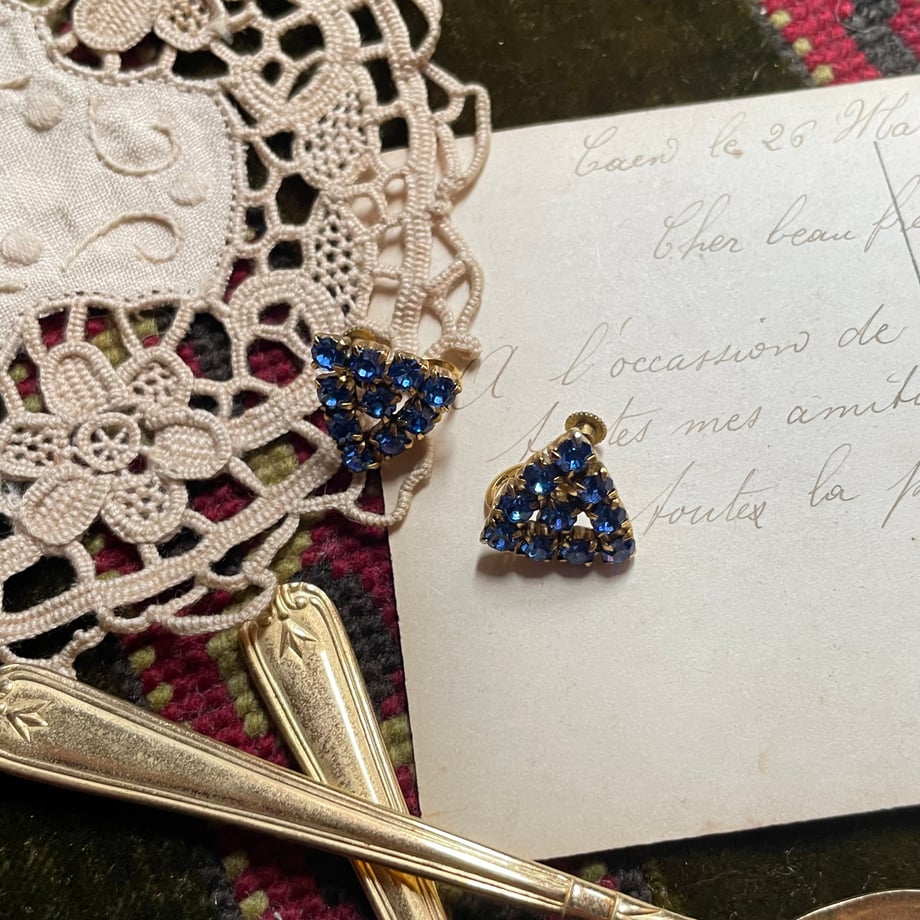 Caen le 26 Ma
Cher beau frè
A l'occassion de
mes amiti
toutex la p